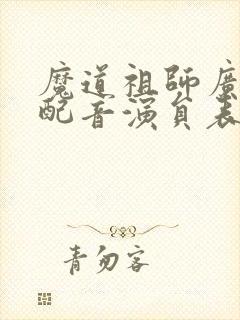 魔道祖師廣
配音演員表
青勿客